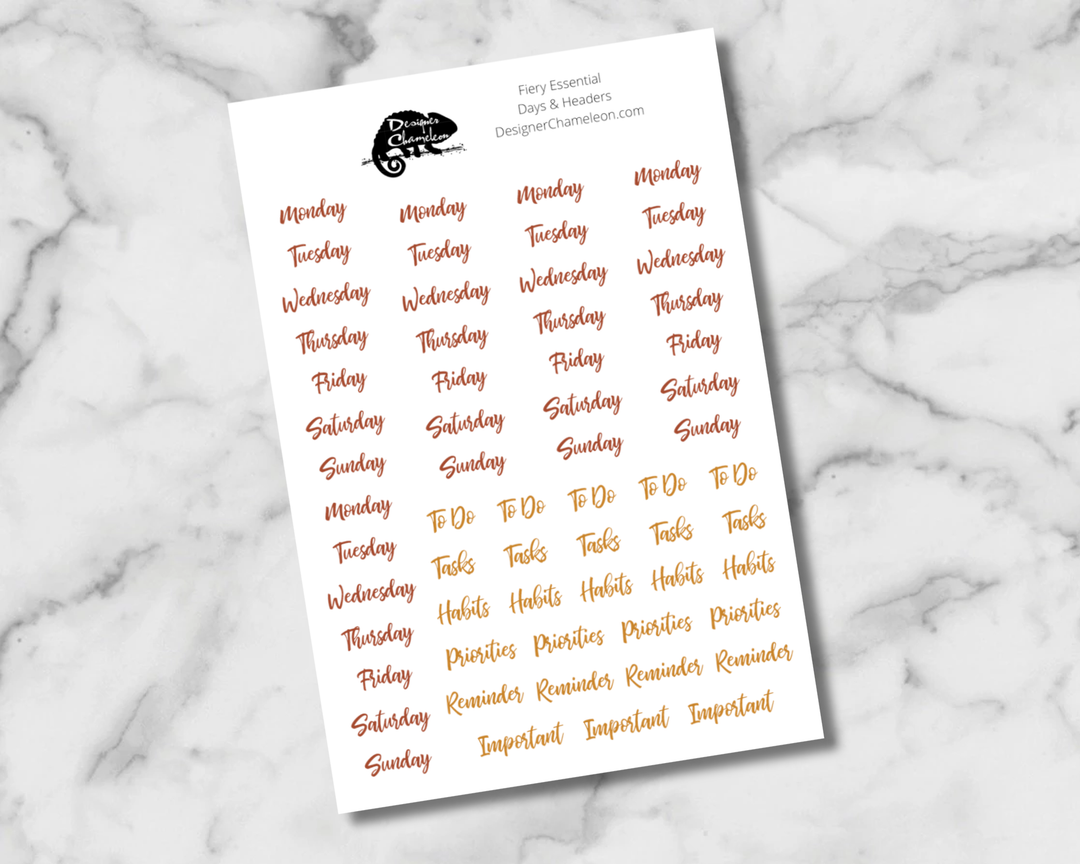 Designer
Chameleon
Fiery Essential
Days & Headers
DesignerChameleon.com
Monday Monday Monday Monday
Tuesday Tuesday Tuesday Tuesday
Wednesday Wednesday Wednesday Wednesday
Thursday Thursday Thursday Thursday
Friday Friday Friday Friday
Saturday Saturday Saturday Saturday
Sunday Sunday Sunday Sunday
Monday
Tuesday
Wednesday
Thursday
Friday
Saturday
Sunday
To Do To Do To Do To Do To Do
Tasks Tasks Tasks Tasks Tasks
Habits Habits Habits Habits Habits
Priorities Priorities Priorities Priorities
Reminder Reminder Reminder Reminder
Important Important Important